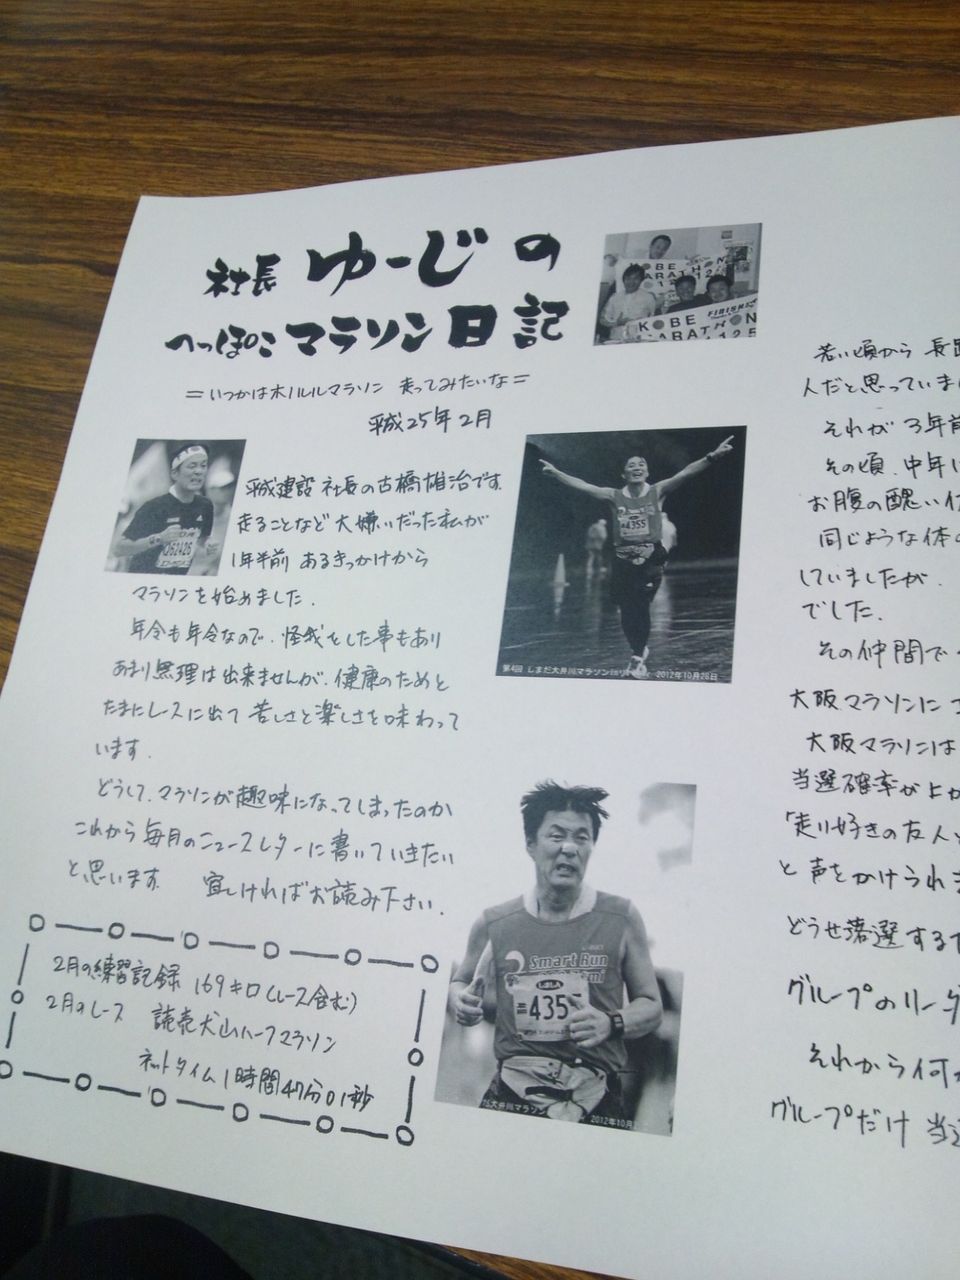 社長 ゆーじの
へっぽこマラソン日記
=いつかはホノルルマラソン 走ってみたいな=
平成25年2月
KOBE
MARATHON
FINISHER
KOBE
MARATHON
平成建設 社長の古橋雄治です。
走ることなど大嫌いだった私が
1年半前 あるきっかけから
マラソンを始めました。
年令も年令なので、怪我をした事もあり
あまり無理は出来ませんが、健康のためと
たまにレースに出て 苦しさと楽しさを味わって
います。
どうして、マラソンが趣味になってしまったのか
これから毎月のニュースレターに書いていきたい
と思います。 宜しければお読み下さい。
2月の練習記録 169キロ(レース含む)
2月のレース 読売犬山ハーフマラソン
ネットタイム1時間47分01秒
4355
第4回 しまだ大井川マラソンinリバティ 2012年10月28日
Smart Run
435
大井川マラソン
2012年10月
若い頃から 長距
人だと思っていま
それが3年前
その頃、中年
お腹の醜い
同じような体の
していましたが、
でした。
その仲間で
大阪マラソンに
大阪マラソンは
当選確率が上が
「走り好きの友人
と 声をかけられ
どうせ落選する
グループのリーダ
それから何
グループだけ 当選